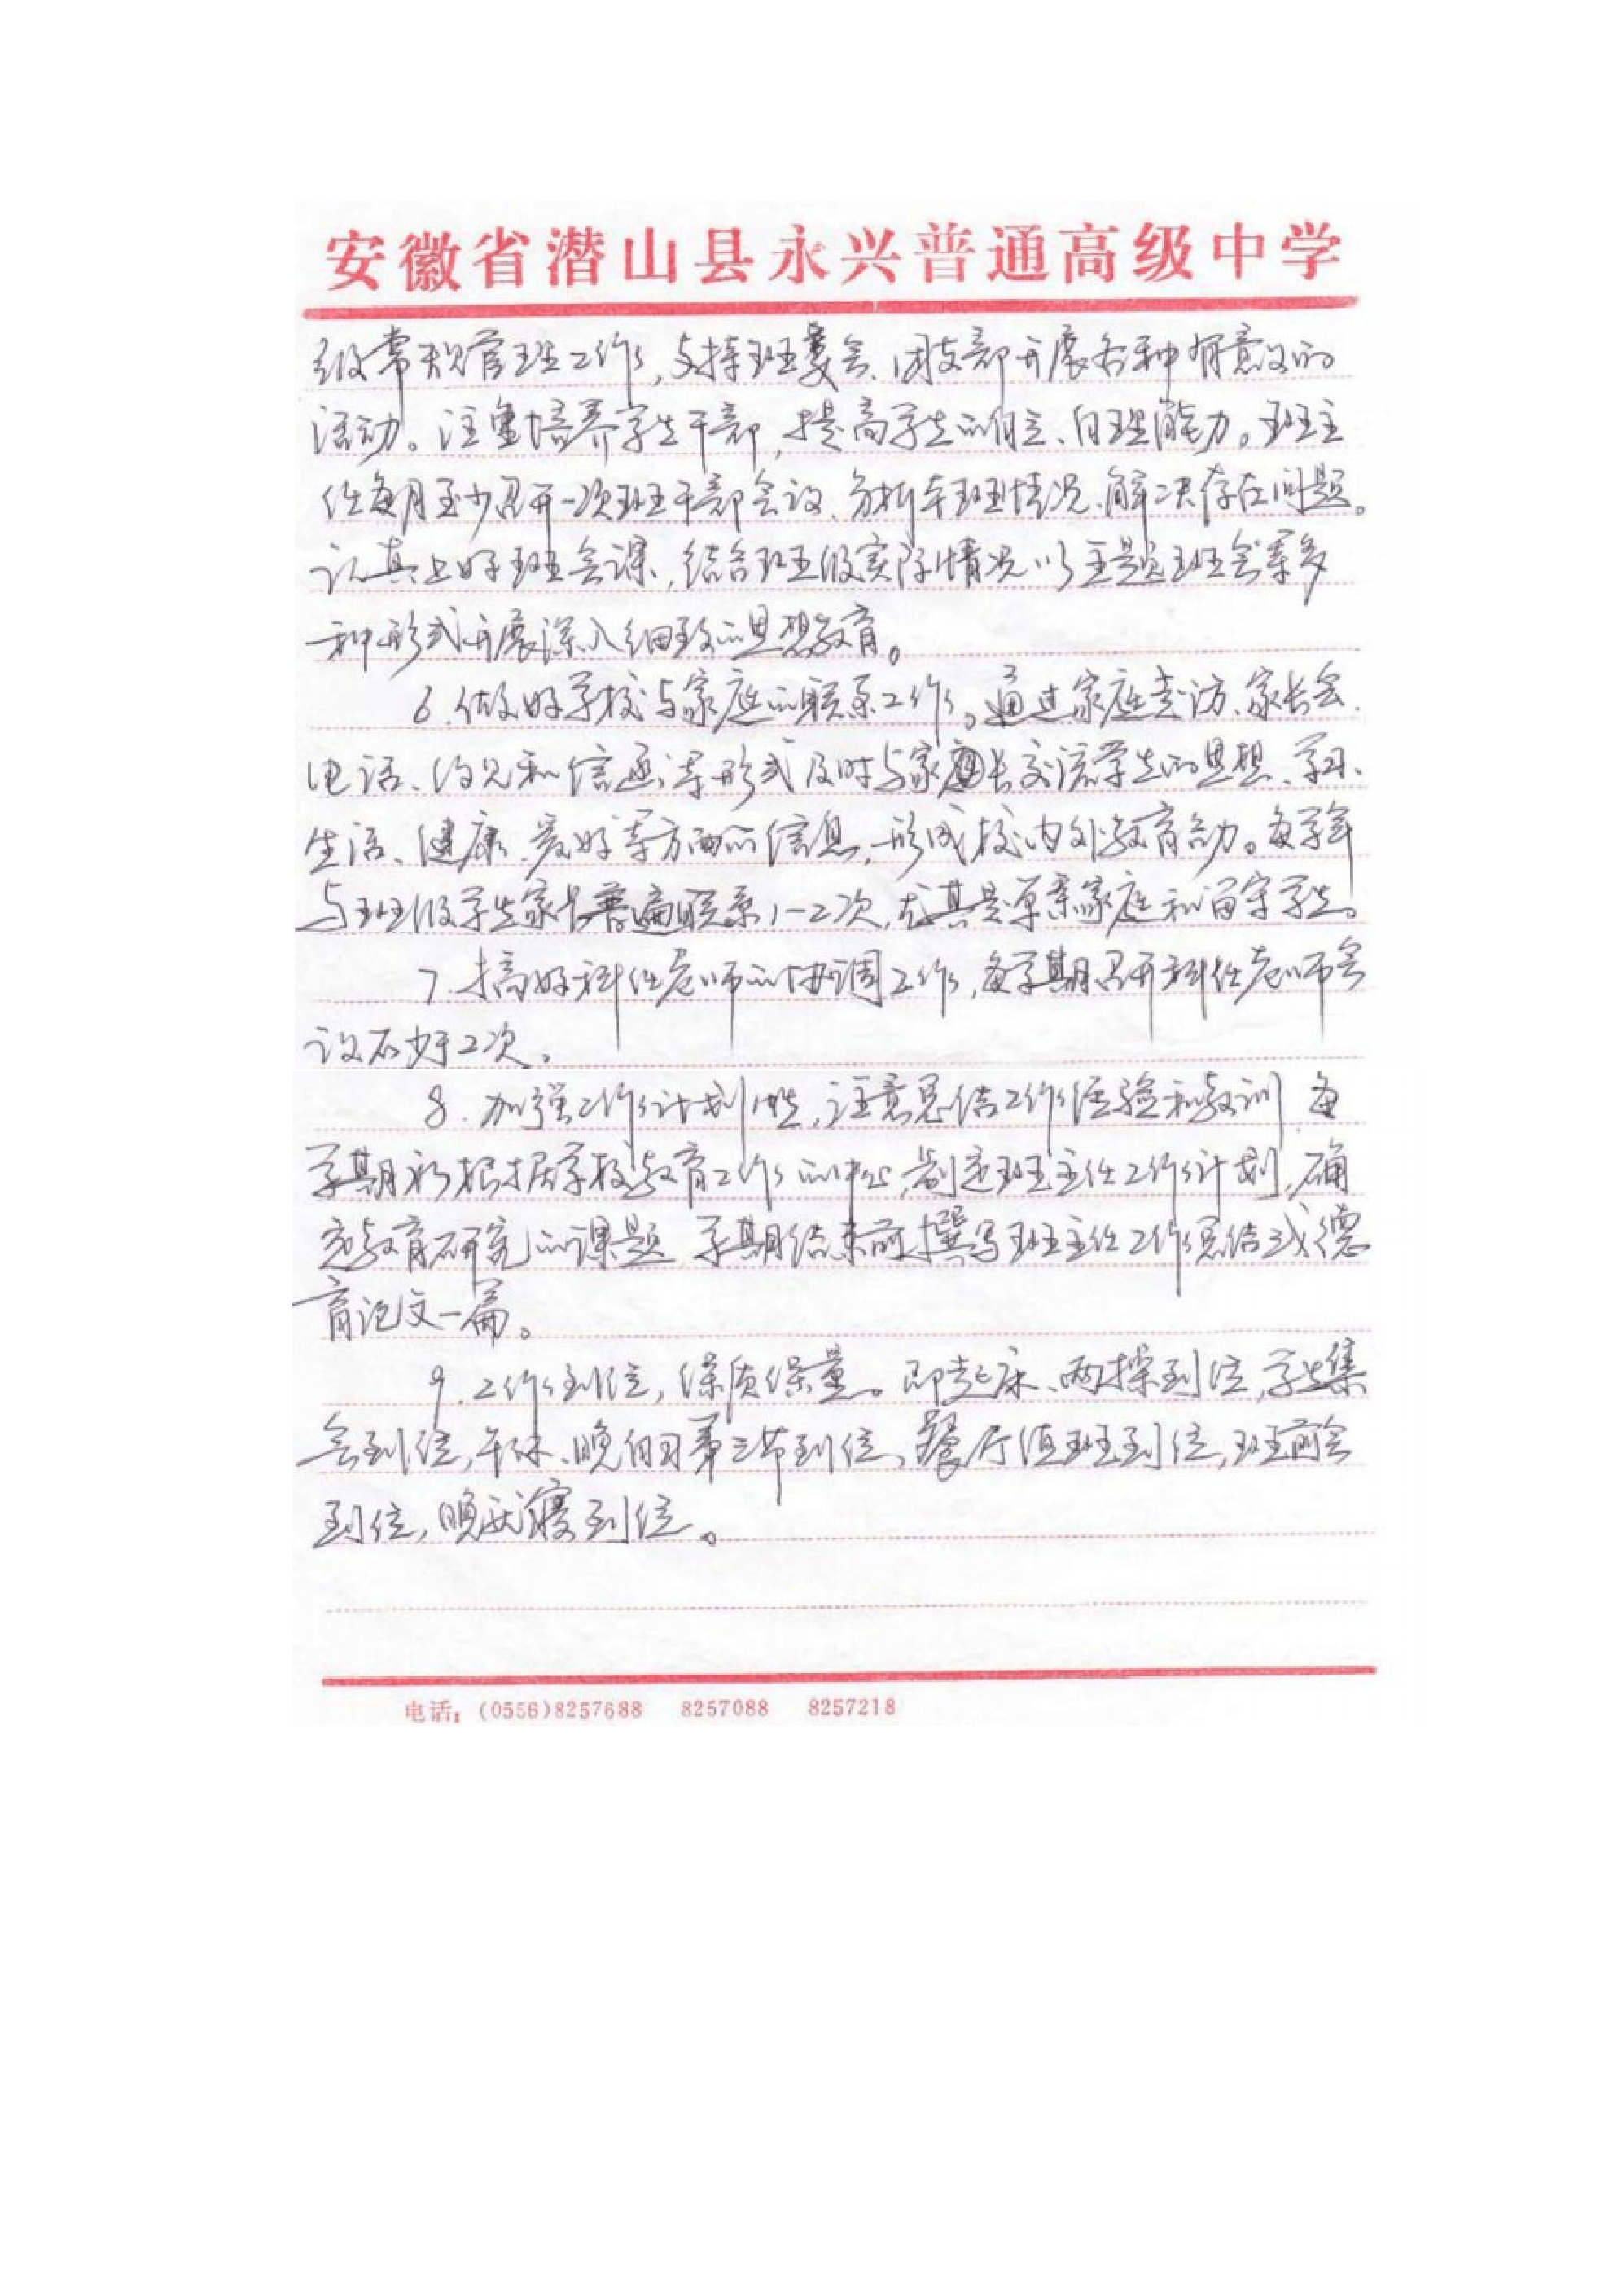 安徽省潜山县永兴普通高级中学
级常规管理工作,支持班委会、团支部开展各种有意义的
活动。注重培养学生干部,提高学生的自主、自理能力。班主
任每月至少召开一次班干部会议、分析本班情况、解决存在问题。
认真上好班会课,结合班级实际情况以主题班会等多
种形式开展深入细致的思想教育。
6.做好学校与家庭的联系工作。通过家庭走访、家长会、
电话、约见和信函等形式及时与家长交流学生的思想、学习、
生活、健康、爱好等方面的信息,形成校内外教育合力。每学年
与班级学生家长普遍联系1-2次,尤其是单亲家庭和留守学生。
7.搞好科任老师的协调工作,每学期召开科任老师会
议不少于2次。
8.加强工作计划性,注意总结工作经验和教训,每
学期初根据学校教育工作的中心,制定班主任工作计划,确
定教育研究的课题,学期结束前撰写班主任工作总结或德
育论文一篇。
9.工作到位,保质保量。即起床、两操到位,学生集
会到位,午休、晚自习第三节到位,餐厅值班到位,班前会
到位,晚就寝到位。
电话:(0556)8257688 8257088 8257218